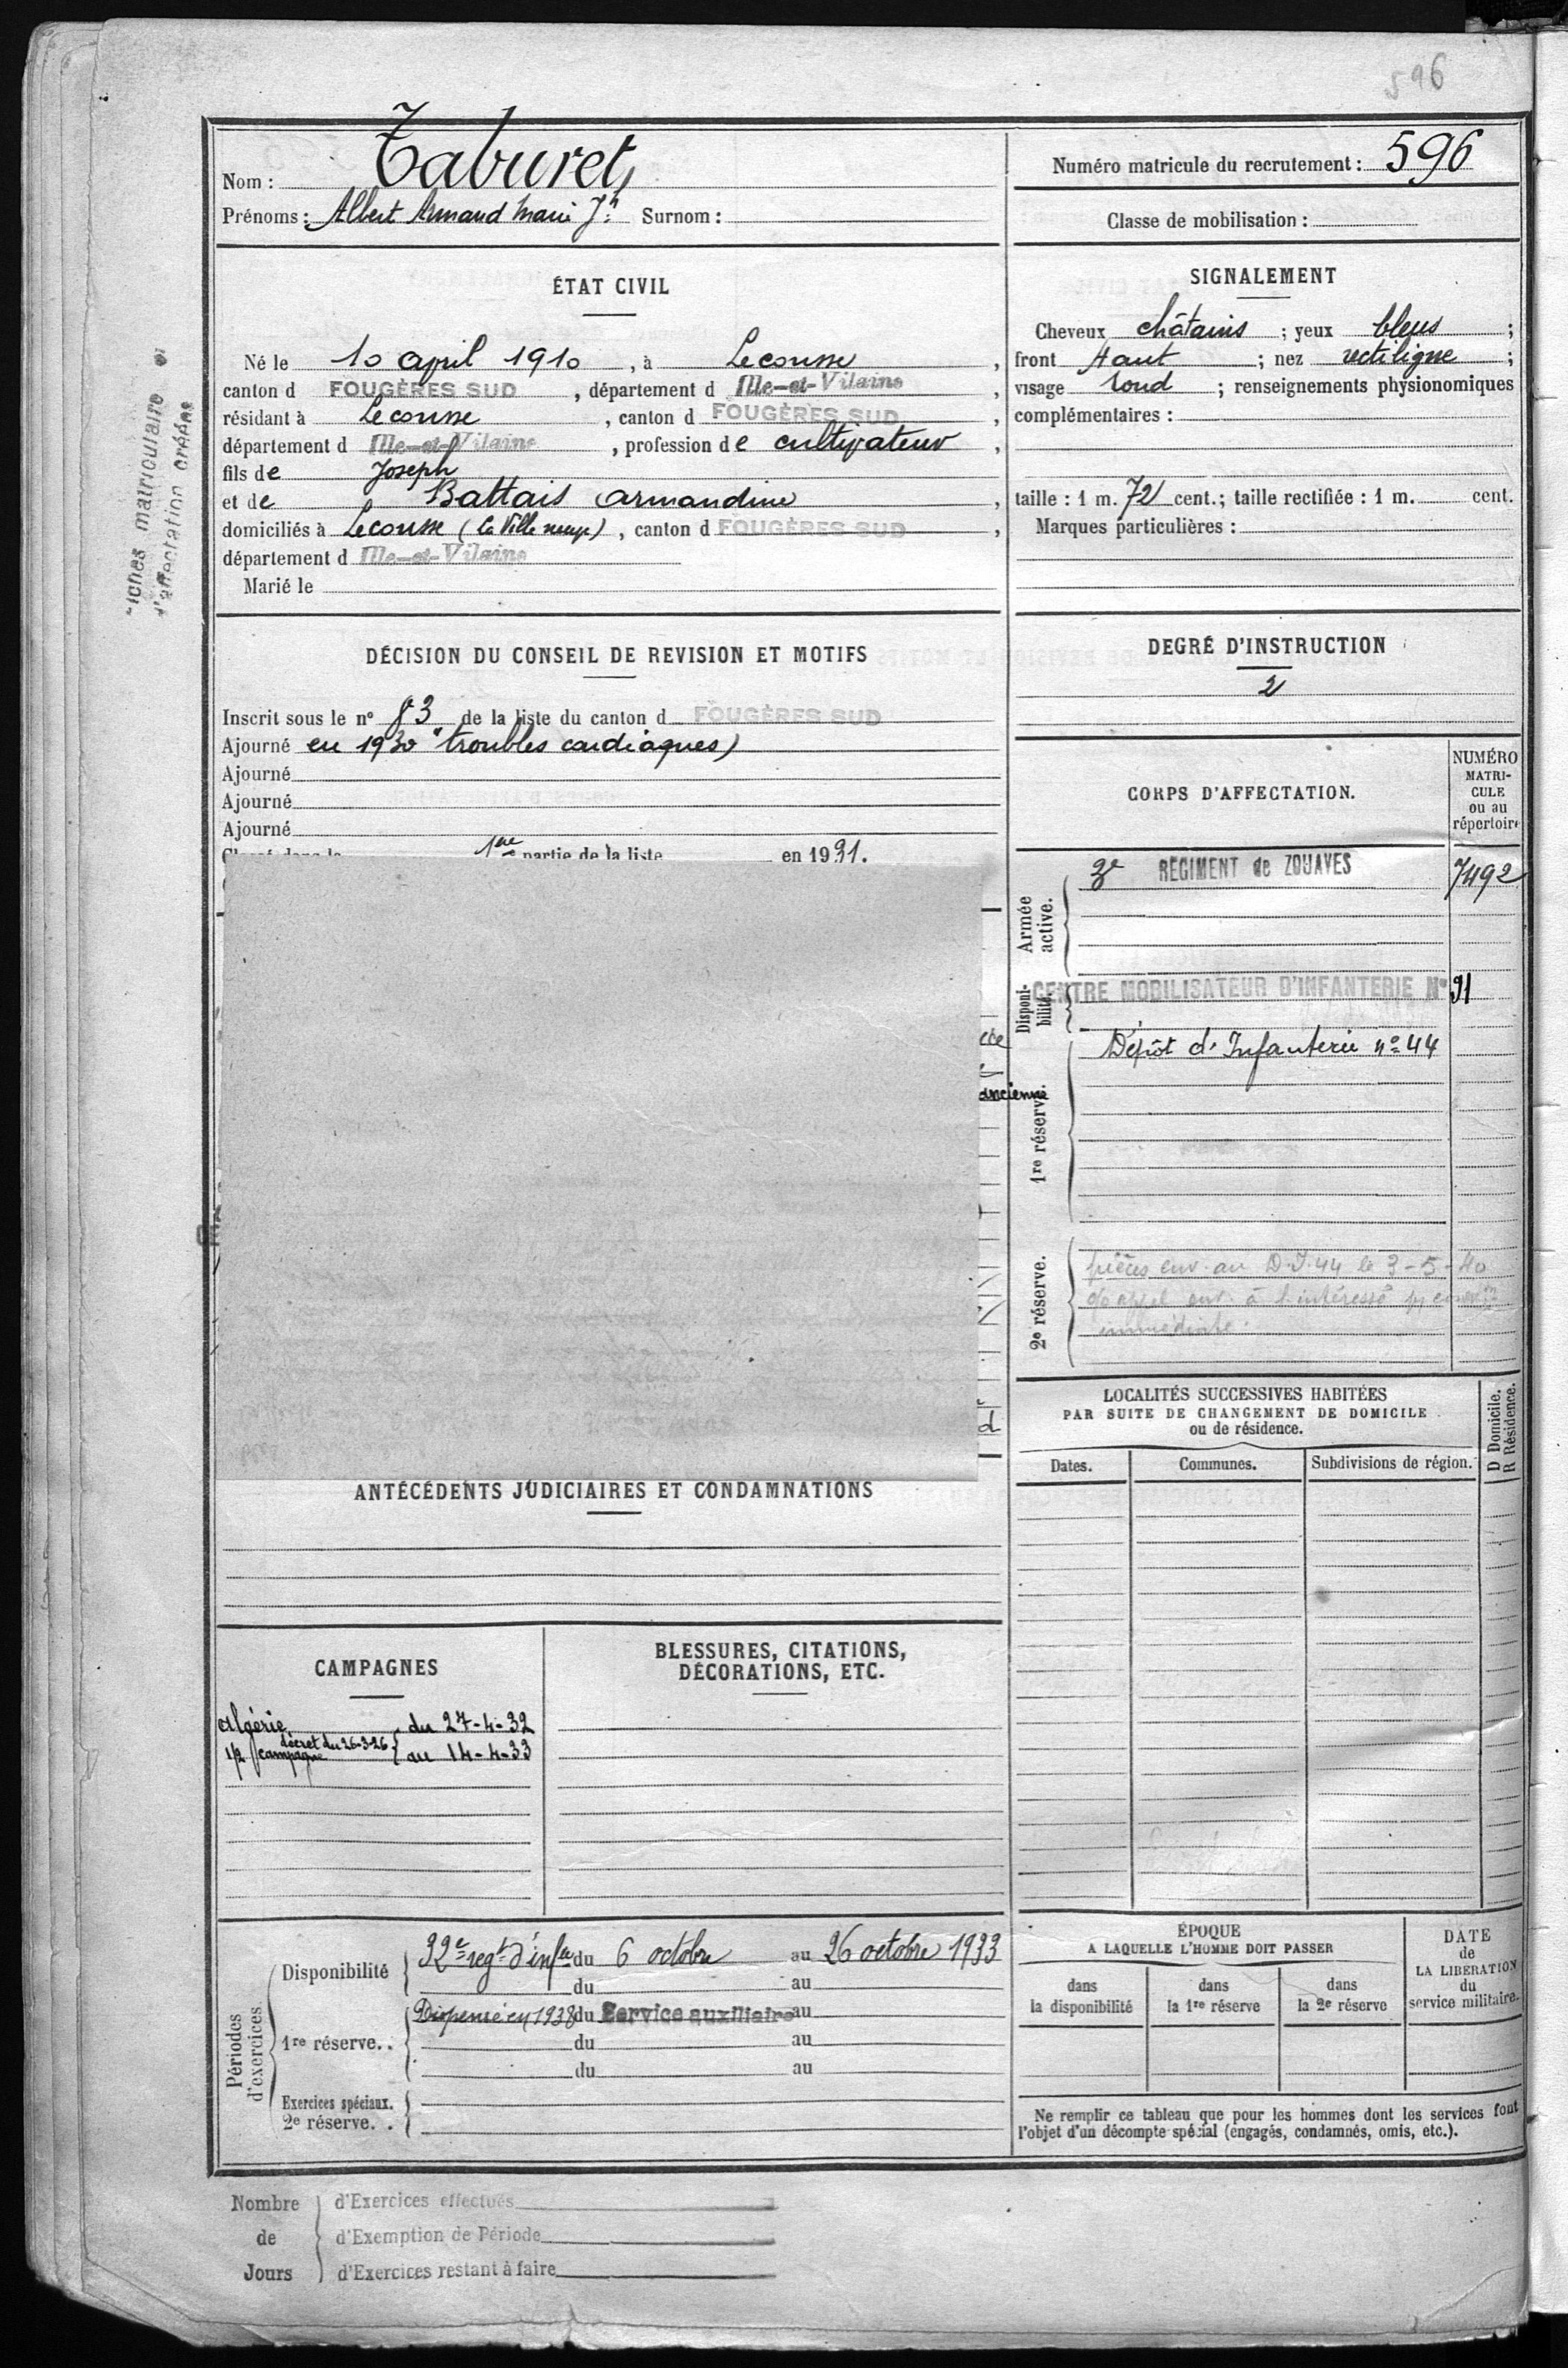 596
Nom : Taburet
Numéro matricule du recrutement : 596
Prénoms : Albert Armand Marie Jh Surnom :
Classe de mobilisation :
ÉTAT CIVIL
Né le 10 avril 1910, à Lecousse,
canton d FOUGÈRES SUD, département d Ille-et-Vilaine,
résidant à Lecousse, canton d FOUGÈRES SUD,
département d Ille-et-Vilaine, profession de cultivateur,
fils de Joseph
et de Battais Armandine,
domiciliés à Lecousse (la Ville neuve), canton d FOUGÈRES SUD,
département d Ille-et-Vilaine
Marié le
SIGNALEMENT
Cheveux châtains ; yeux bleus ;
front haut ; nez rectiligne ;
visage rond ; renseignements physionomiques
complémentaires :
taille : 1 m. 72 cent. ; taille rectifiée : 1 m. cent.
Marques particulières :
fiches matriculaire et
d'affectation créées
DÉCISION DU CONSEIL DE REVISION ET MOTIFS
Inscrit sous le n° 83 de la liste du canton d FOUGÈRES SUD
Ajourné en 1930 "troubles cardiaques)
Ajourné
Ajourné
Ajourné
Classé dans la 1ère partie de la liste en 1931.
ancienne
DEGRÉ D'INSTRUCTION
2
CORPS D'AFFECTATION.
NUMÉRO
MATRI-
CULE
ou au
répertoire
Armée
active.
3e REGIMENT de ZOUAVES 7492
Disponi-
bilité.
CENTRE MOBILISATEUR D'INFANTERIE N° 31
1re réserve.
Dépôt d'Infanterie n° 44
2e réserve.
pièces env. au D.I. 44 le 3-5-40
à l'intéressé
immédiate.
LOCALITÉS SUCCESSIVES HABITÉES
PAR SUITE DE CHANGEMENT DE DOMICILE
ou de résidence.
D Domicile.
R Résidence.
Dates. Communes. Subdivisions de région.
ANTÉCÉDENTS JUDICIAIRES ET CONDAMNATIONS
CAMPAGNES
Algérie du 27-4-32
décret du 26-3-26
1/2 campagne au 14-4-33
BLESSURES, CITATIONS,
DÉCORATIONS, ETC.
Périodes
d'exercices
Disponibilité 32e regt d'infie du 6 octobre au 26 octobre 1933
du au
1re réserve.. Dispensé en 1938 du Service auxiliaire au
du au
du au
Exercices spéciaux.
2e réserve. .
ÉPOQUE
A LAQUELLE L'HOMME DOIT PASSER
dans
la disponibilité
dans
la 1re réserve
dans
la 2e réserve
DATE
de
LA LIBERATION
du
service militaire.
Ne remplir ce tableau que pour les hommes dont les services font
l'objet d'un décompte spécial (engagés, condamnés, omis, etc.).
Nombre d'Exercices effectués
de d'Exemption de Période
Jours d'Exercices restant à faire